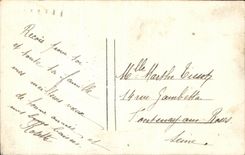 Reçois pour toi
et toute ta famille
mes meilleurs vœux
de bonne année et
mes bons baisers
Melle Marthe Tissot
14 rue Gambetta
Fontenay aux Roses
Seine